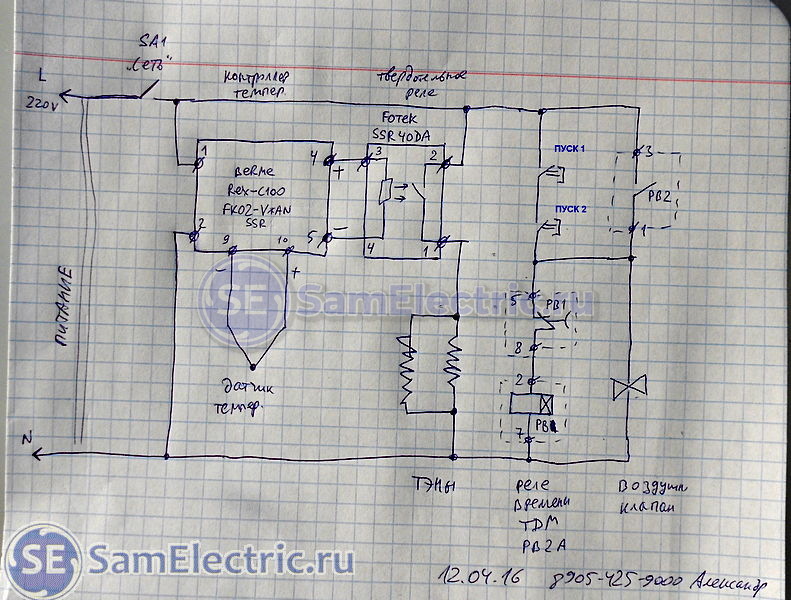 SA1
"Сеть"
L
220v
контроллер
темпер.
твердотельное
реле
Fотек
SSR40DA
1
4
+
3
2
BERME
Rex-C100
FK02-V*AN
SSR
2
5
-
4
1
9
10
-
+
ПУСК 1
ПУСК 2
3
РВ2
1
SE SamElectric.ru
5
РВ1
8
2
7
ПИТАНИЕ
Датчик
темпер.
N
ТЭНы
реле
времени
TDM
РВ2А
Воздушн
клапан
SE SamElectric.ru
12.04.16 8905-425-9000 Александр